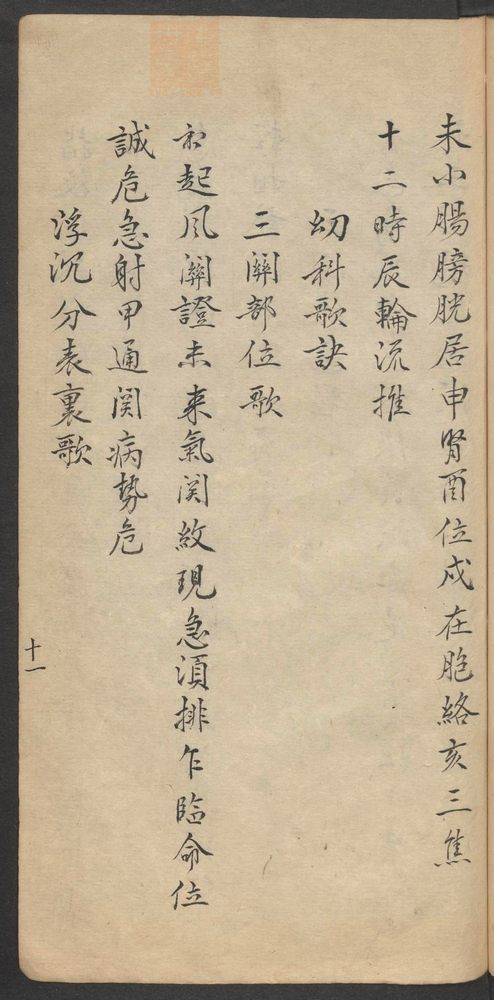 未小腸膀胱居申腎酉位戌在胞絡亥三焦
十二時辰輪流推
幼科歌訣
三關部位歌
初起风關證未來氣関紋現急湏排乍臨命位
誠危急射甲通関病势危
浮沉分表裏歌
十一